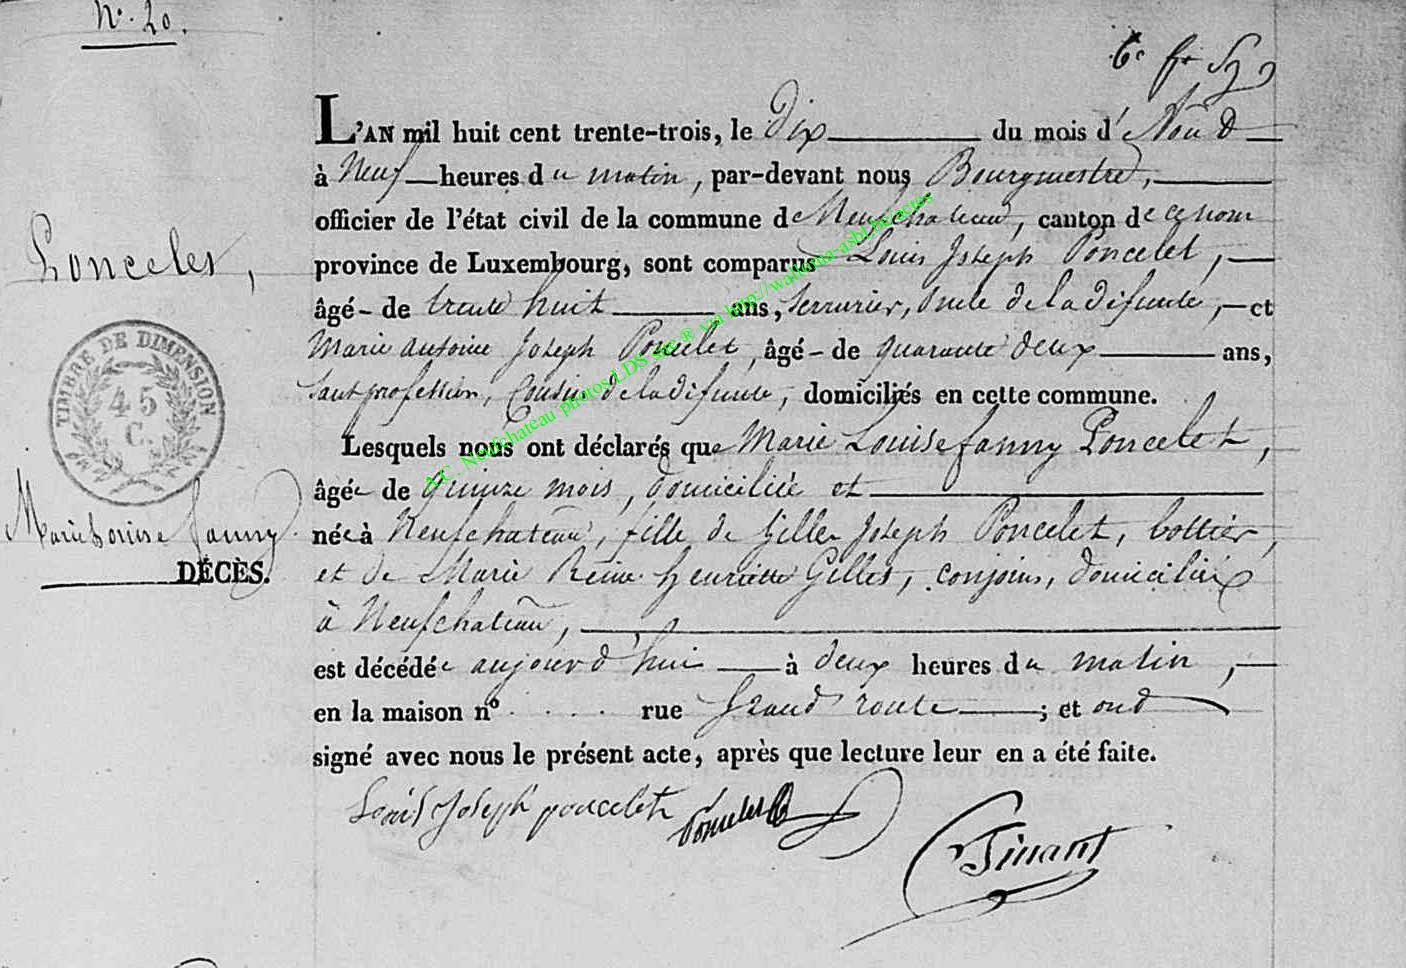 N°. 20.
6e fe
L'AN mil huit cent trente-trois, le dix du mois d'
à Neuf heures du matin, par-devant nous Bourgmestre,
officier de l'état civil de la commune de Neufchateau, canton de ce nom
Poncelet,
province de Luxembourg, sont comparus Louis Joseph Poncelet,
âgé - de trente huit ans, Serrurier, oncle de la défunte, et
Marie Antoine Joseph Poncelet, âgé - de quarante deux ans,
TIMBRE DE DIMENSION
45
C.
Sans profession, Cousin de la défunte, domiciliés en cette commune.
Lesquels nous ont déclarés que Marie Louise Fanny Poncelet,
âgée de quinze mois, domiciliée et
Marie Louise Fanny
née à Neufchateau, fille de Gilles Joseph Poncelet, bottier,
DÉCÈS.
et de Marie Reine Henriette Gilles, conjoins, domiciliés
à Neufchateau,
est décédée aujourd'hui à deux heures du matin,
en la maison n° . . . . rue Grand route ; et ont
signé avec nous le présent acte, après que lecture leur en a été faite.
Louis Joseph poncelet Poncelet Tinant
A.C. Neufchateau photos LDS via http://wallonia-asbl.be/actes